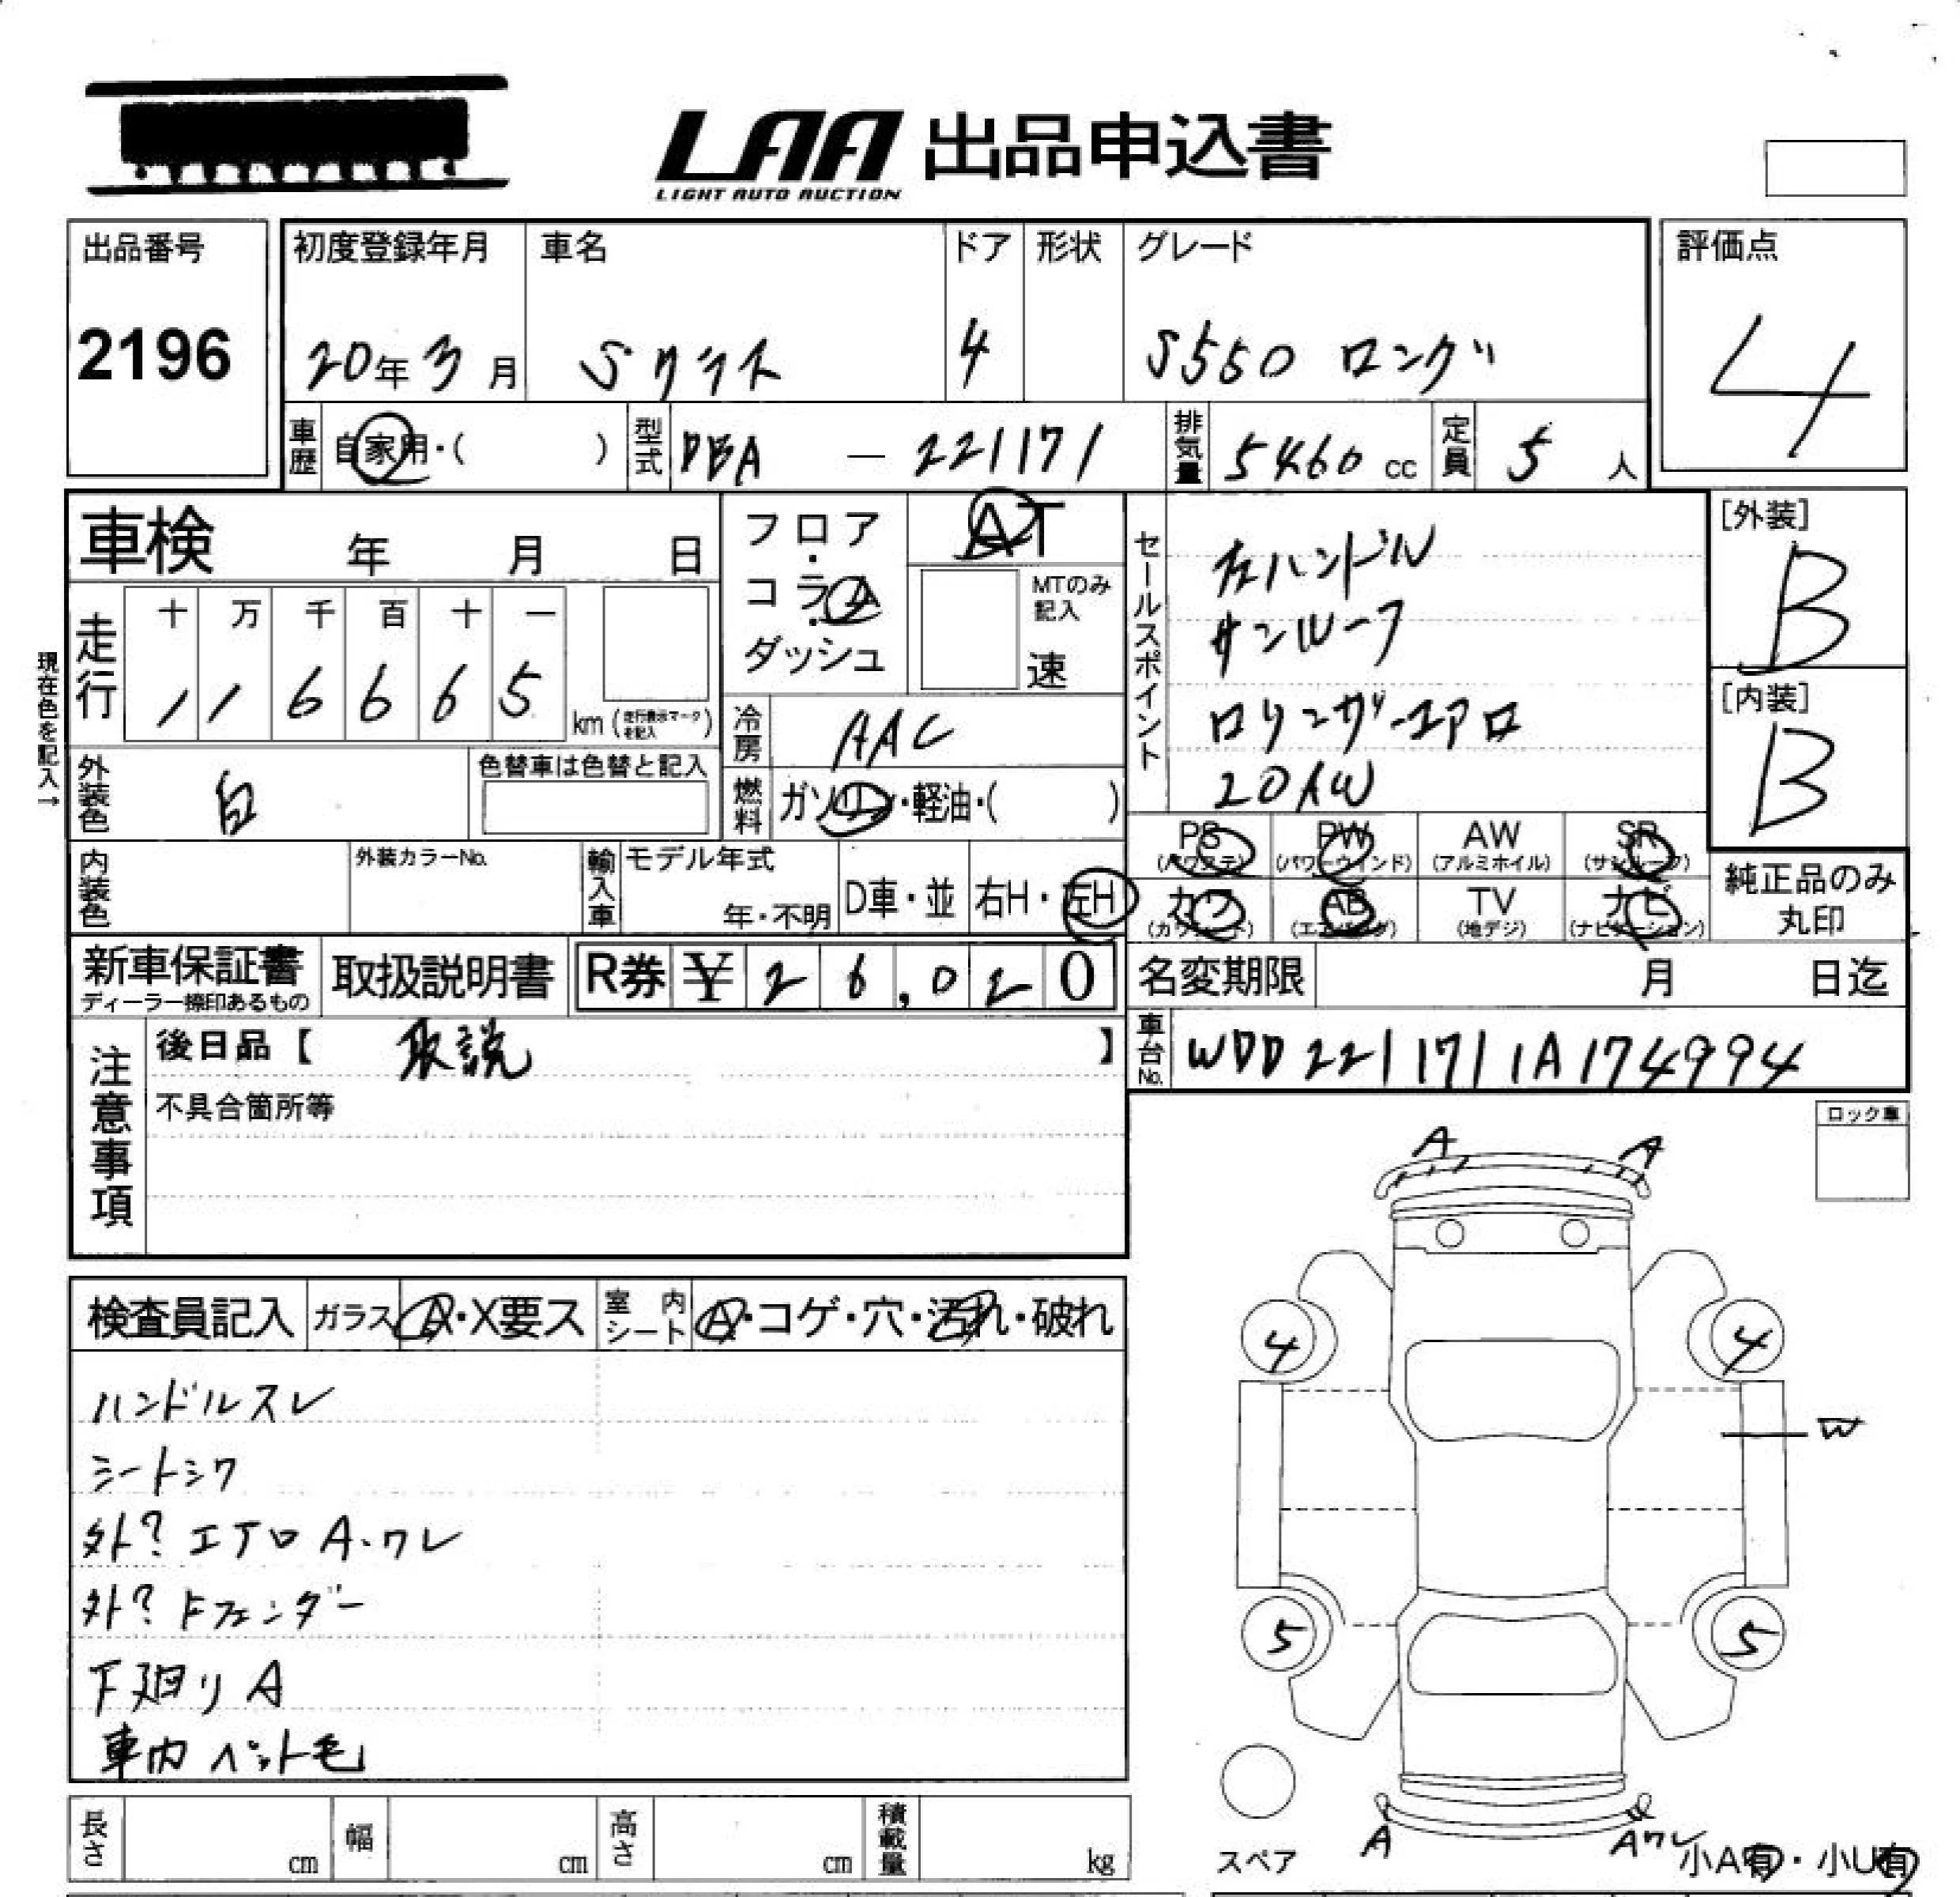 LAA 出品申込書
LIGHT AUTO AUCTION
出品番号
2196
初度登録年月
20年3月
車名
Sクラス
ドア
4
形状
グレード
S550 ロング
評価点
4
車歴
自家用・( )
型式
DBA - 221171
排気量
5460 cc
定員
5 人
車検 年 月 日
フロア・コラム・ダッシュ
AT
MTのみ記入
速
セールスポイント
左ハンドル
サンルーフ
ロリンザーエアロ
20AW
[外装]
B
[内装]
B
現在色を記入→
走行
十 万 千 百 十 一
1 1 6 6 6 5
km (走行表示マークを記入)
冷房
AAC
外装色
白
色替車は色替と記入
燃料
ガソリン・軽油・( )
PS (パワステ)
PW (パワーウインド)
AW (アルミホイル)
SR (サンルーフ)
カワ (カワシート)
AB (エアバッグ)
TV (地デジ)
ナビ (ナビゲーション)
純正品のみ
丸印
内装色
外装カラーNo.
輸入車
モデル年式
年・不明
D車・並
右H・左H
新車保証書
ディーラー捺印あるもの
取扱説明書
R券 ¥ 2 6,0 2 0
名変期限 月 日迄
車台No.
WDD2211711A174994
注意事項
後日品【 取説 】
不具合箇所等
ロック車
検査員記入
ガラス
A・X要ス
室内シート
A・コゲ・穴・汚れ・破れ
ハンドルスレ
シートシワ
外?エアロA・ワレ
外?Fフェンダー
下廻りA
車内ペット毛
A
A
4
4
W
5
5
スペア
A
Aワレ
小A有・小U有
長さ cm
幅 cm
高さ cm
積載量 kg